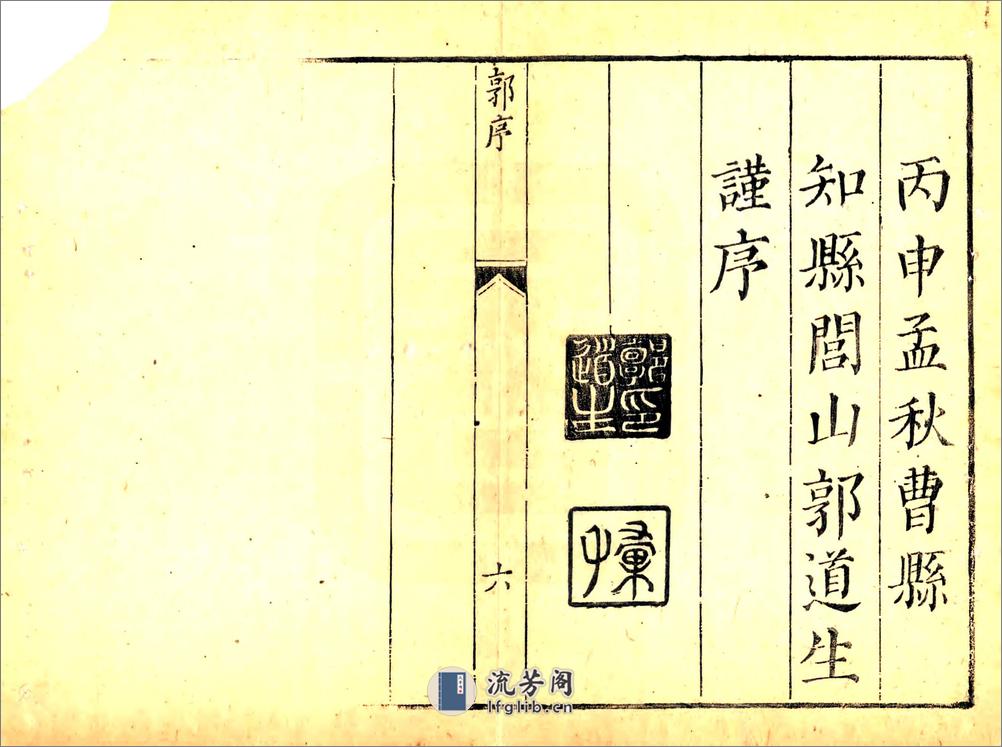 丙申孟秋曹縣
知縣閭山郭道生
謹序
郭印道生
郭序
六
流芳阁
lfglib.cn